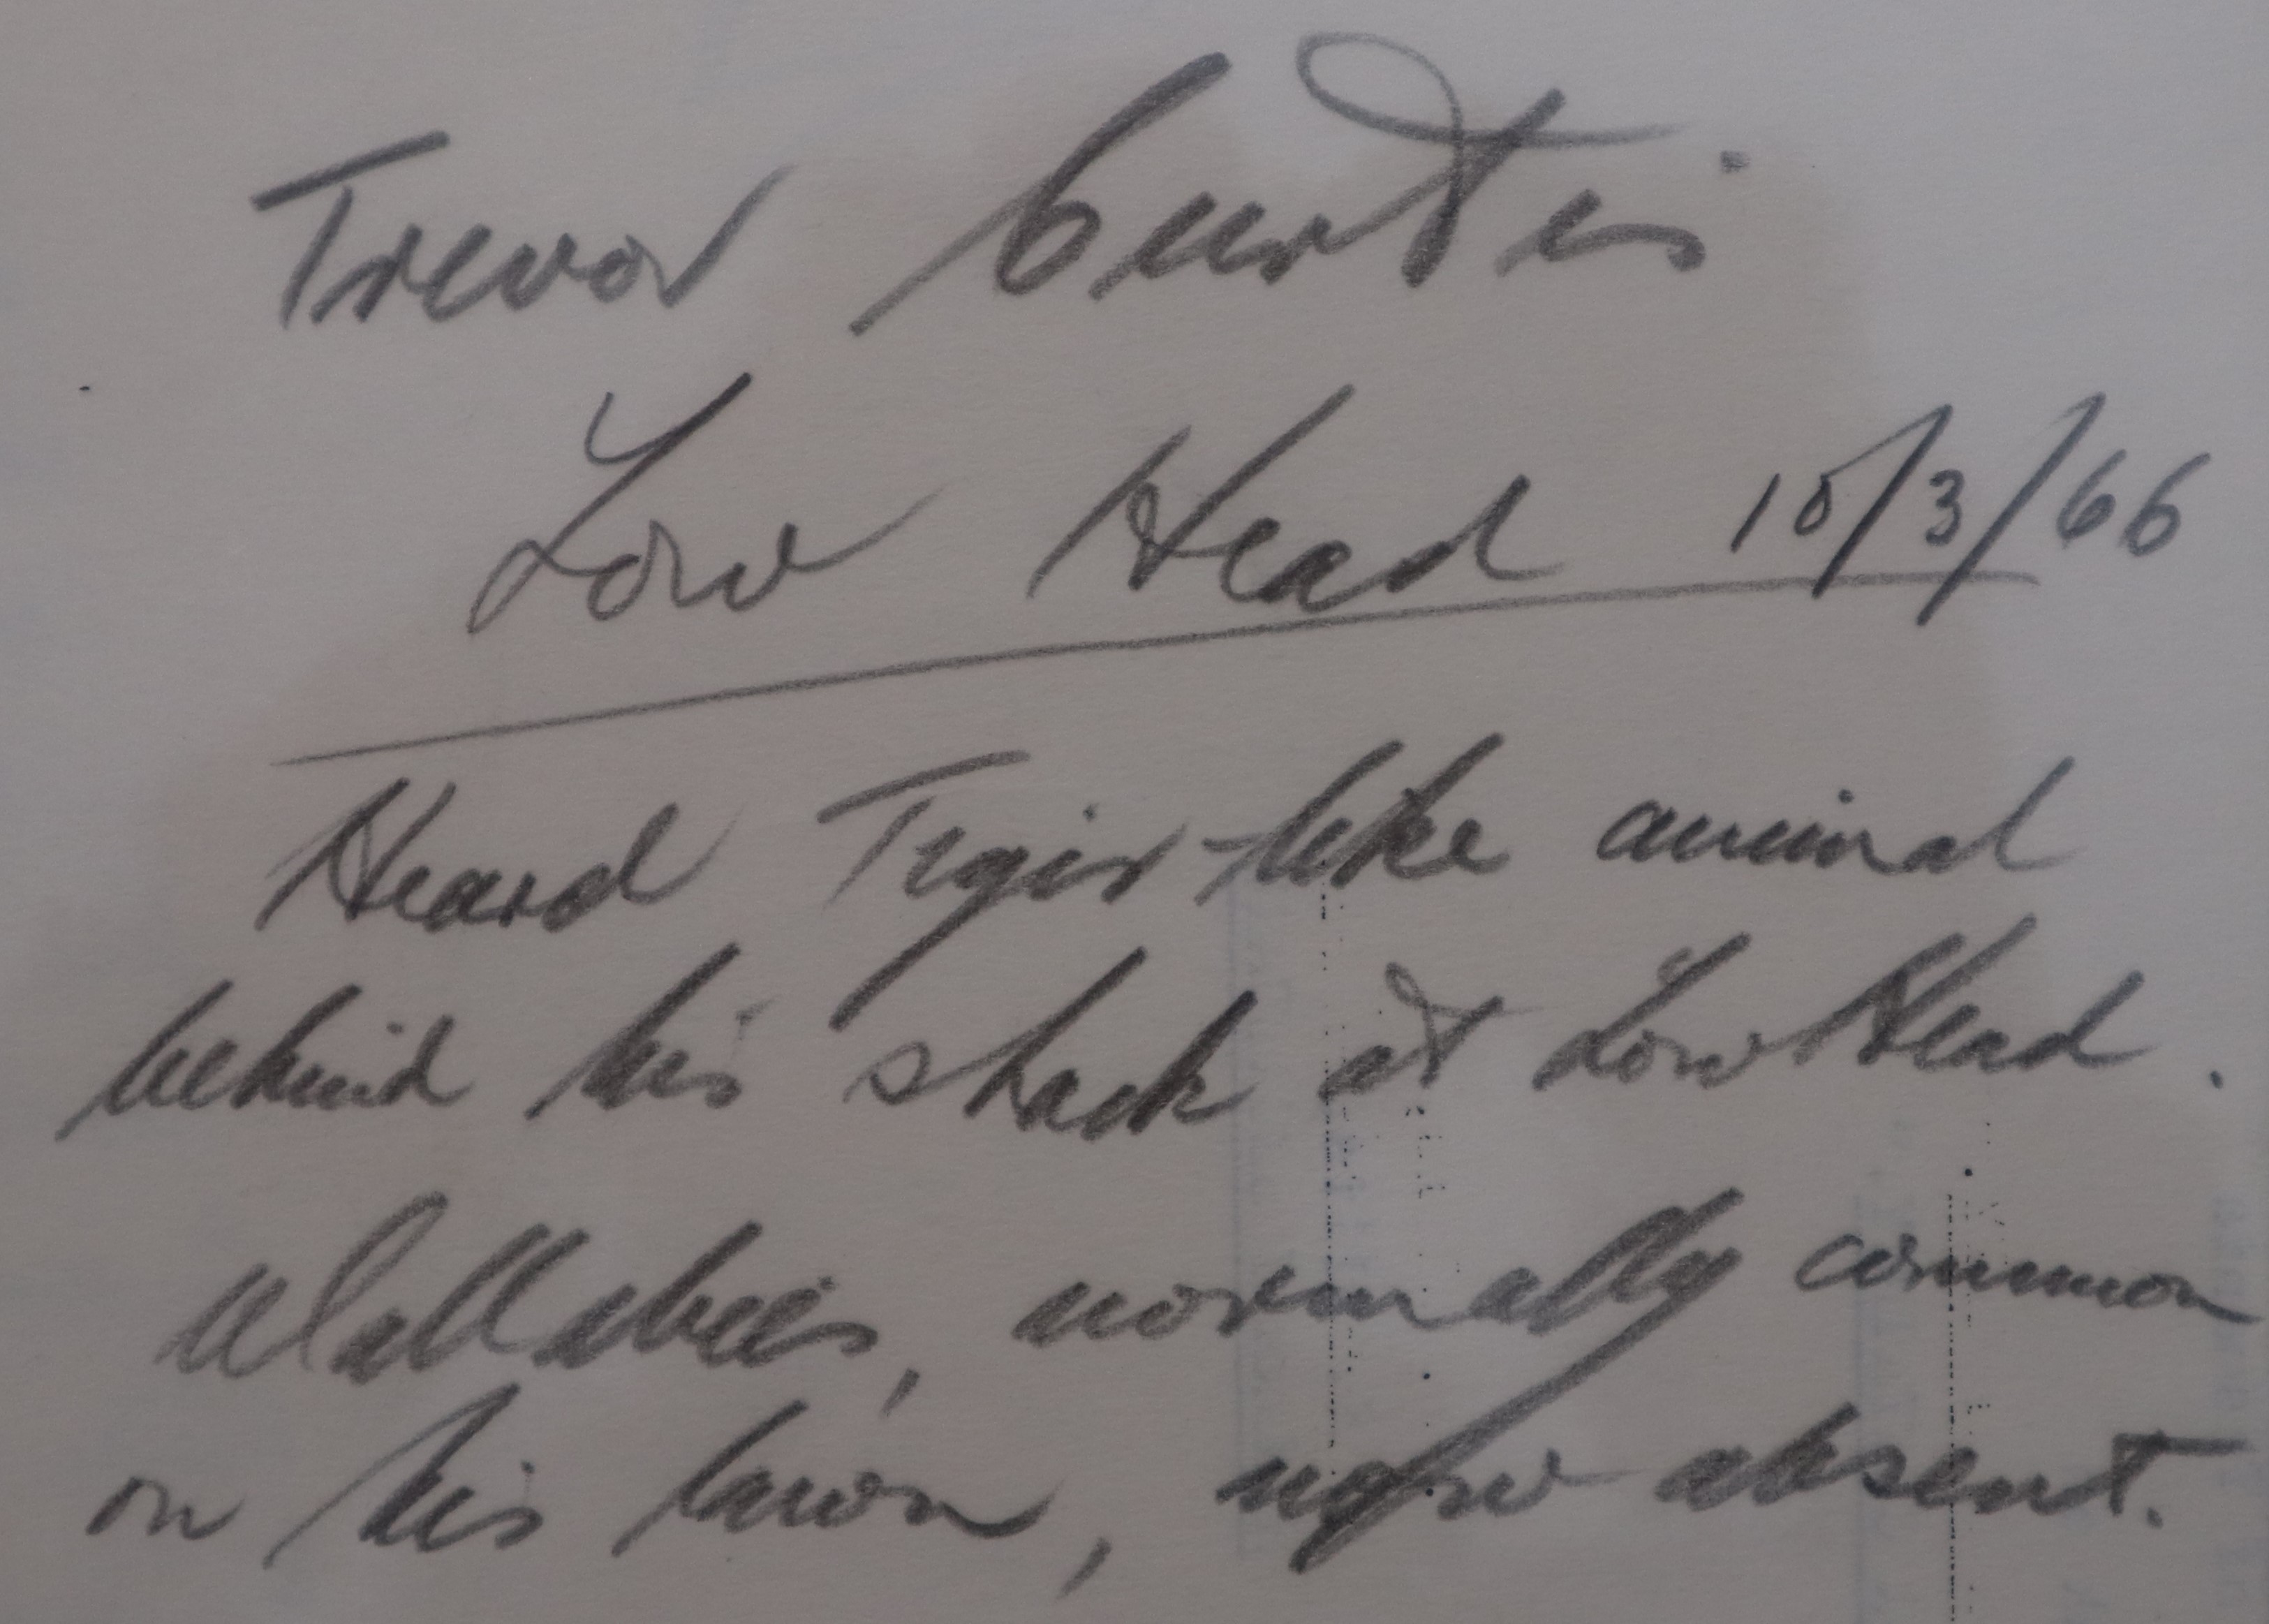 Trevor Curtis
Low Head 10/3/66
Heard Tiger-like animal
behind his shack at Low Head.
Wallabies, normally common
on his lawn, now absent.